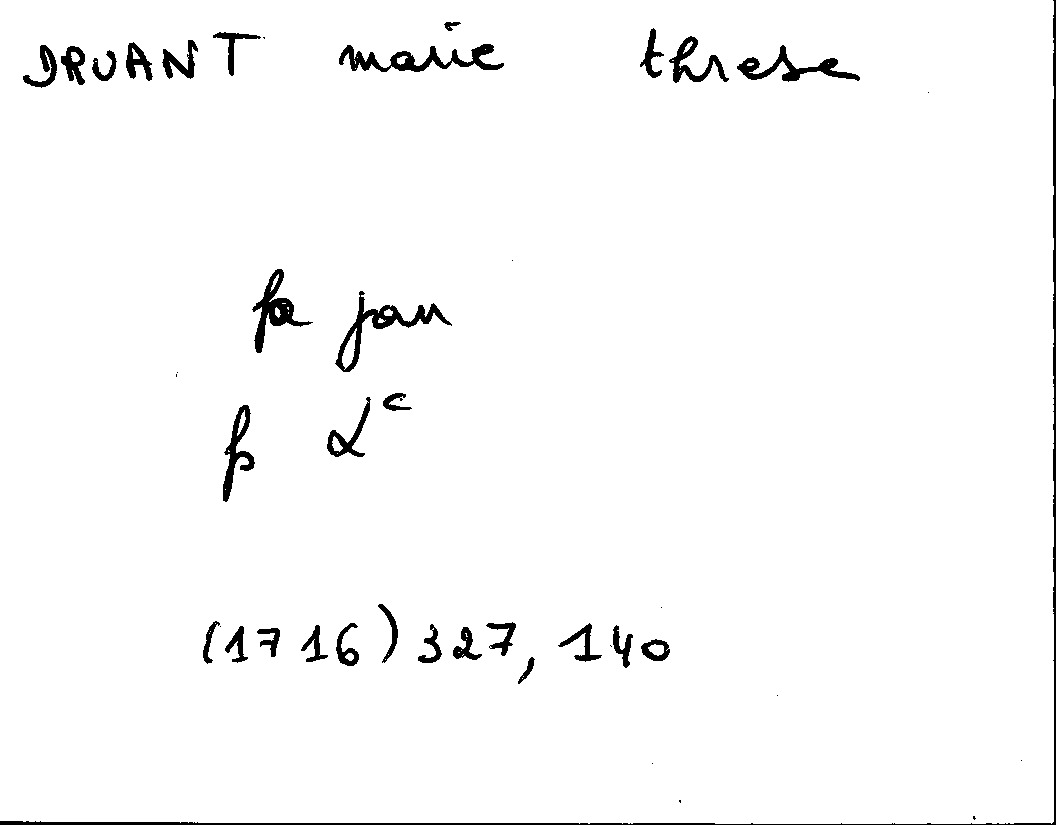 DRUANT marie threse
fa jan
p Lc
(1716) 327, 140